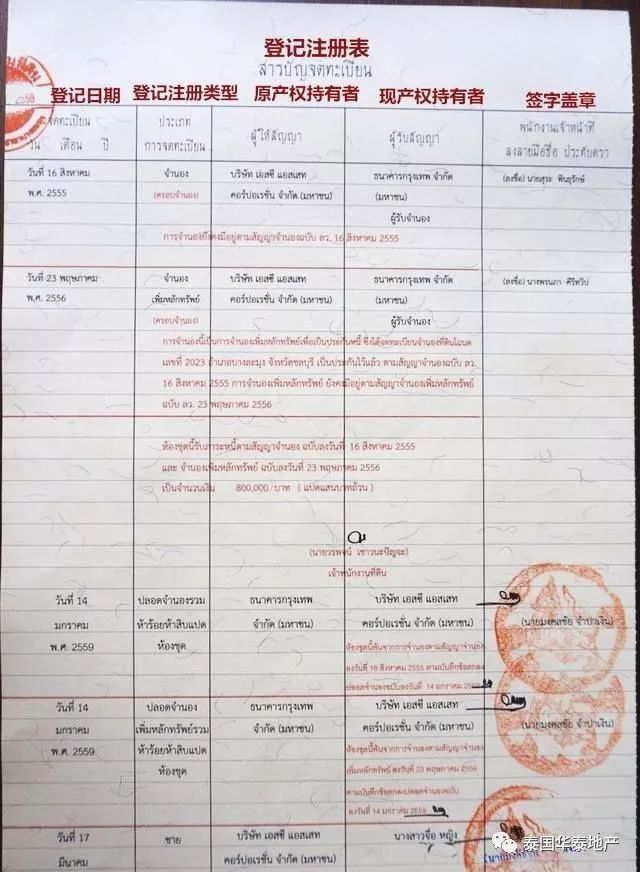 登记注册表
สารบัญจดทะเบียน
登记日期 登记注册类型 原产权持有者 现产权持有者 签字盖章
2558
จดทะเบียน
วัน เดือน ปี
ประเภท
การจดทะเบียน
ผู้ให้สัญญา
ผู้รับสัญญา
พนักงานเจ้าหน้าที่
ลงลายมือชื่อ ประทับตรา
วันที่ 16 สิงหาคม
พ.ศ. 2555
จำนอง
(ครอบจำนอง)
บริษัท เอสซี แอสเสท
คอร์ปอเรชั่น จำกัด (มหาชน)
ธนาคารกรุงเทพ จำกัด
(มหาชน)
ผู้รับจำนอง
(ลงชื่อ) นายสุระ พินธุรักษ์
การจำนองยังคงมีอยู่ตามสัญญาจำนองฉบับ ลว. 16 สิงหาคม 2555
วันที่ 23 พฤษภาคม
พ.ศ. 2556
จำนอง
เพิ่มหลักทรัพย์
(ครอบจำนอง)
บริษัท เอสซี แอสเสท
คอร์ปอเรชั่น จำกัด (มหาชน)
ธนาคารกรุงเทพ จำกัด
(มหาชน)
ผู้รับจำนอง
(ลงชื่อ) นางพรนภา คีรีทวีป
การจำนองนี้เป็นการจำนองเพิ่มหลักทรัพย์เพื่อเป็นประกันหนี้ ซึ่งได้จดทะเบียนจำนองที่ดินโฉนด
เลขที่ 2023 อำเภอบางละมุง จังหวัดชลบุรี เป็นประกันไว้แล้ว ตามสัญญาจำนองฉบับ ลว.
16 สิงหาคม 2555 การจำนองเพิ่มหลักทรัพย์ ยังคงมีอยู่ตามสัญญาจำนองเพิ่มหลักทรัพย์
ฉบับ ลว. 23 พฤษภาคม 2556
ห้องชุดนี้รับภาระหนี้ตามสัญญาจำนอง ฉบับลงวันที่ 16 สิงหาคม 2555
และ จำนองเพิ่มหลักทรัพย์ ฉบับลงวันที่ 23 พฤษภาคม 2556
เป็นจำนวนเงิน 800,000 บาท ( แปดแสนบาทถ้วน )
(นายวรพจน์ เชาวนะปัญจะ)
เจ้าพนักงานที่ดิน
วันที่ 14
มกราคม
พ.ศ. 2559
ปลอดจำนองรวม
ห้าร้อยห้าสิบแปด
ห้องชุด
ธนาคารกรุงเทพ
จำกัด (มหาชน)
บริษัท เอสซี แอสเสท
คอร์ปอเรชั่น จำกัด (มหาชน)
ห้องชุดนี้พ้นจากการจำนองตามสัญญาจำนอง
ลงวันที่ 16 สิงหาคม 2555 ตามบันทึกข้อตกลง
ปลอดจำนองฉบับลงวันที่ 14 มกราคม 2559
(นายมงคลชัย จำปาเงิน)
วันที่ 14
มกราคม
พ.ศ. 2559
ปลอดจำนอง
เพิ่มหลักทรัพย์รวม
ห้าร้อยห้าสิบแปด
ห้องชุด
ธนาคารกรุงเทพ
จำกัด (มหาชน)
บริษัท เอสซี แอสเสท
คอร์ปอเรชั่น จำกัด (มหาชน)
ห้องชุดนี้พ้นจากการจำนองตามสัญญาจำนอง
เพิ่มหลักทรัพย์ ลงวันที่ 23 พฤษภาคม 2556
ตามบันทึกข้อตกลงปลอดจำนองฉบับ
ลงวันที่ 14 มกราคม 2559
(นายมงคลชัย จำปาเงิน)
วันที่ 17
มีนาคม
ขาย
บริษัท เอสซี แอสเสท
คอร์ปอเรชั่น จำกัด (มหาชน)
นางสาวจื่อ หญิง
泰国华泰地产